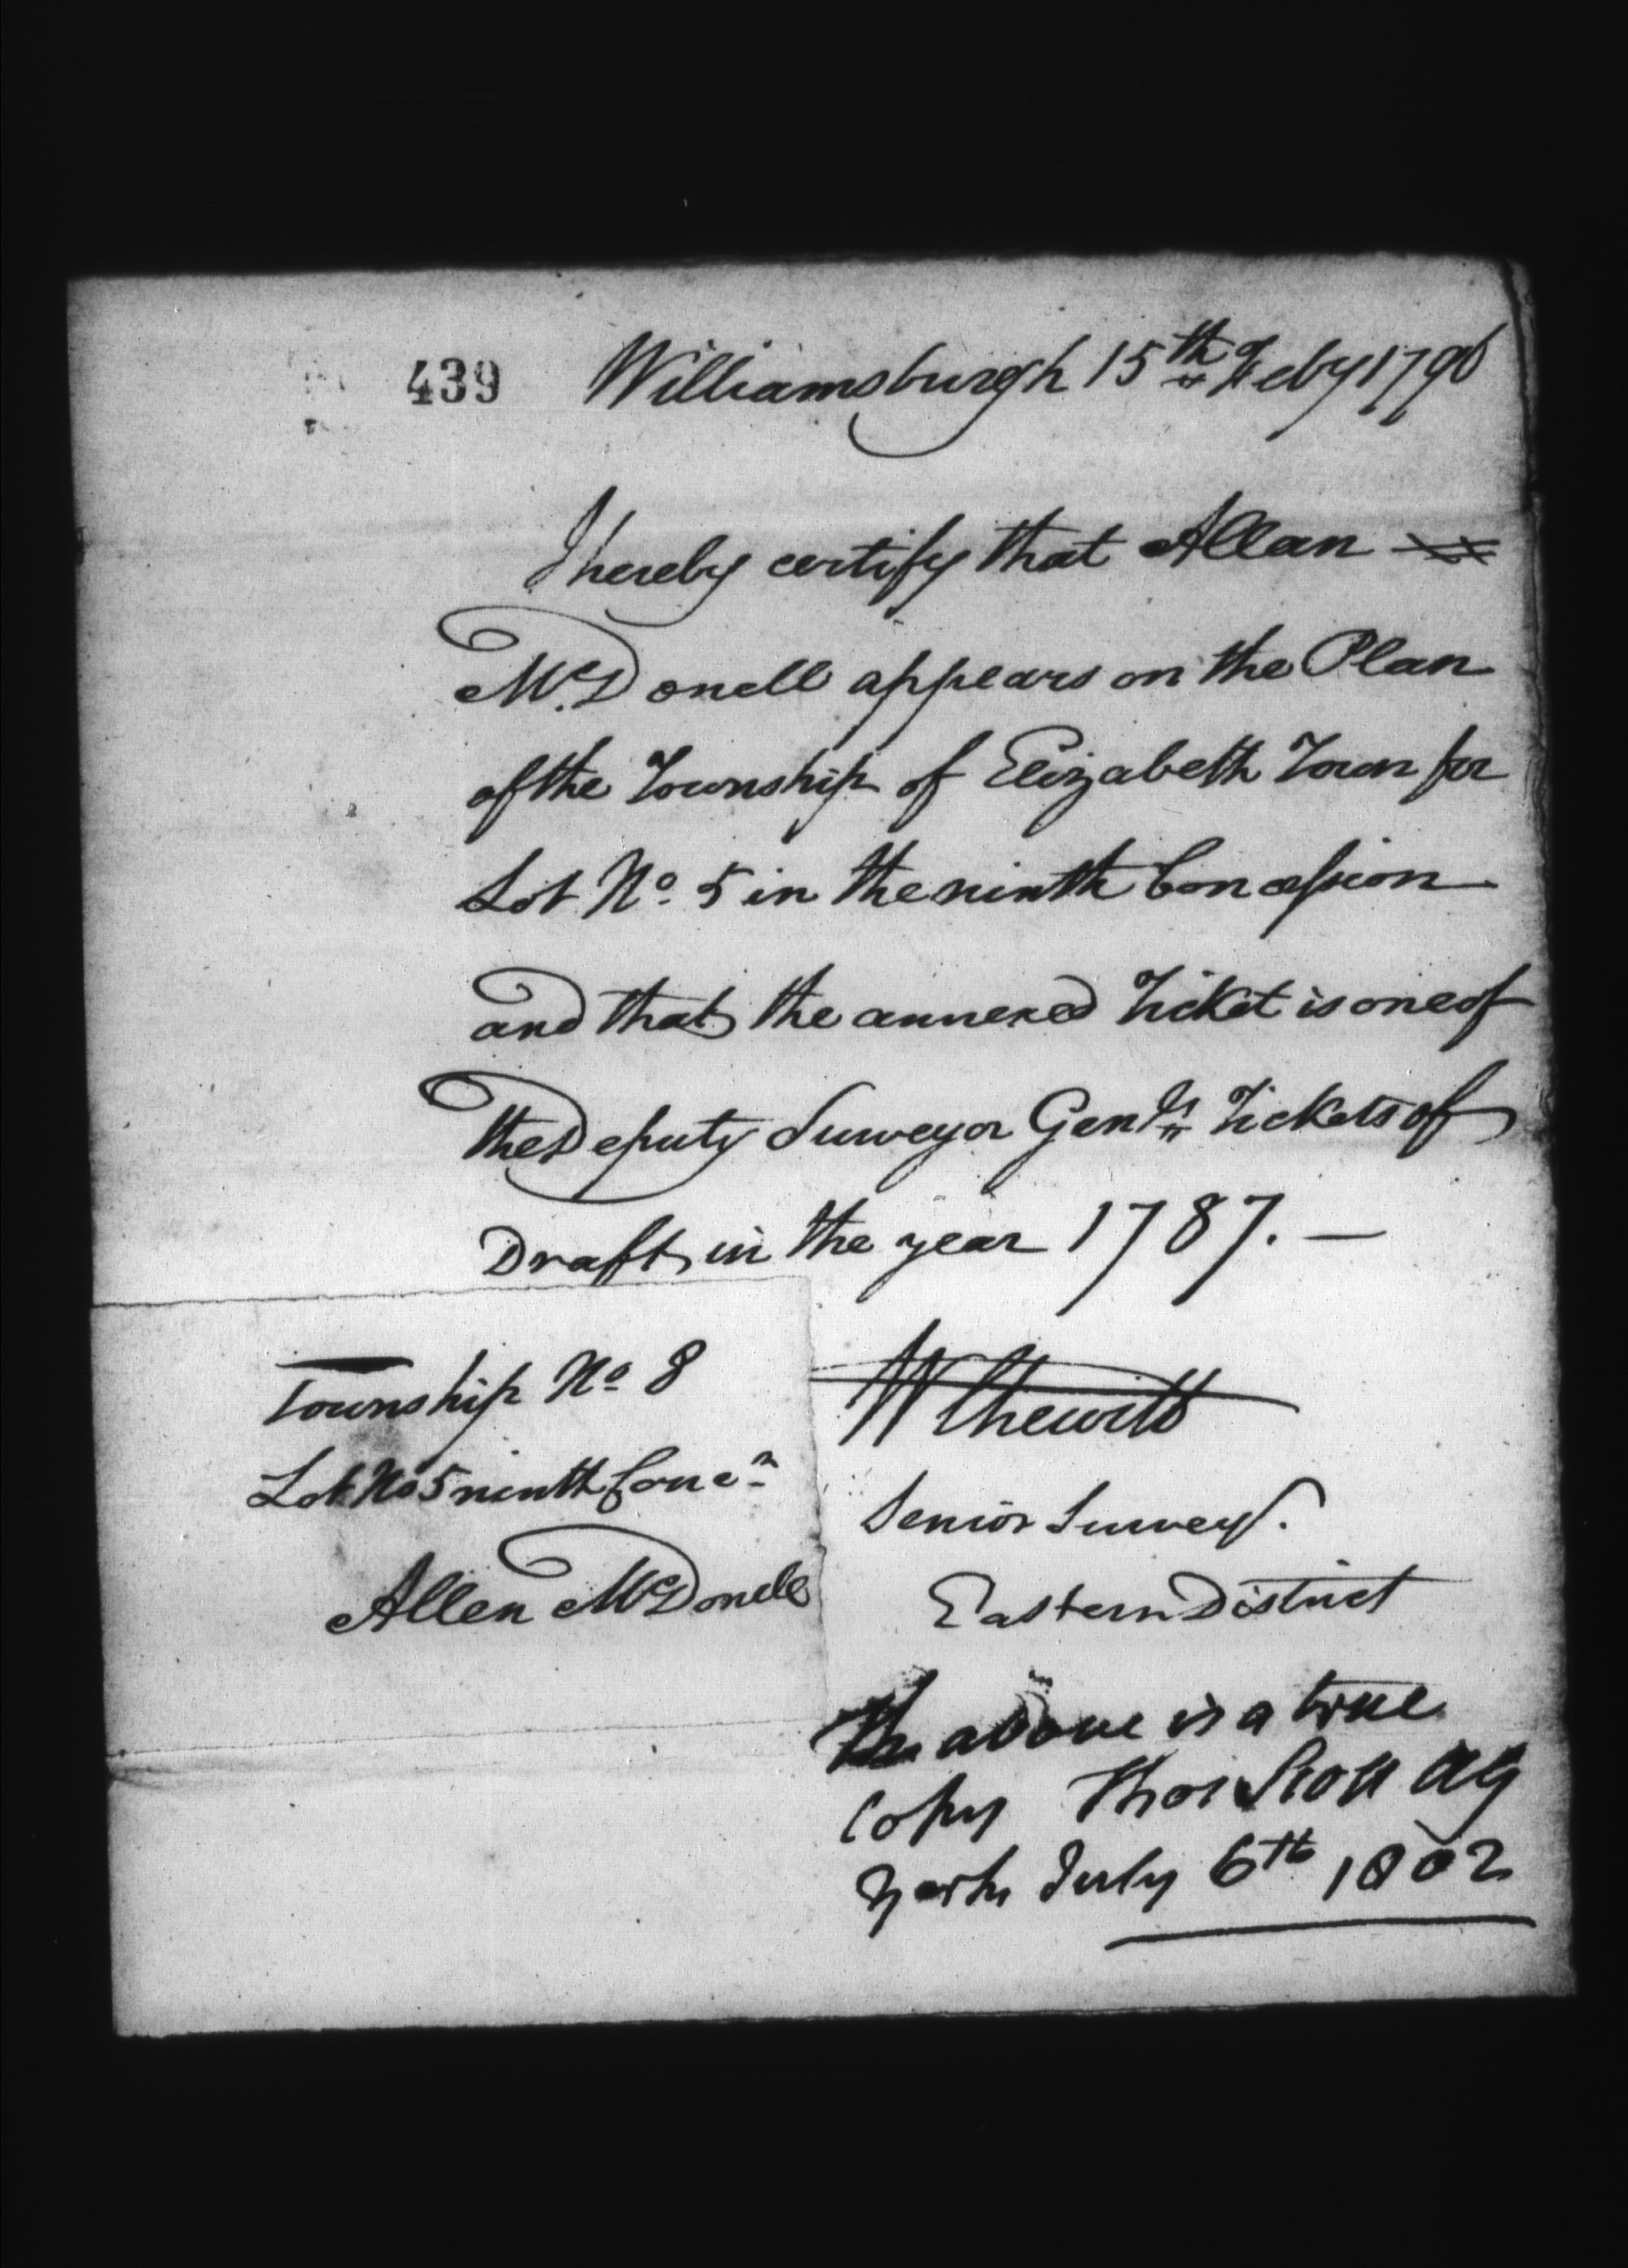 439 Williamsburgh 15th Feby 1796
I hereby certify that Allan
McDonell appears on the Plan
of the Township of Elizabeth Town for
Lot No. 5 in the ninth Concession
and that the annexed Ticket is one of
the Deputy Surveyor Genls Tickets of
Draft in the year 1787. —
Township No 8
Lot No 5 ninth Concn
Allen McDonell
W Chewett
Senior Surveyr.
Eastern District
The above is a true
Copy Thos Scott AG
York July 6th 1802